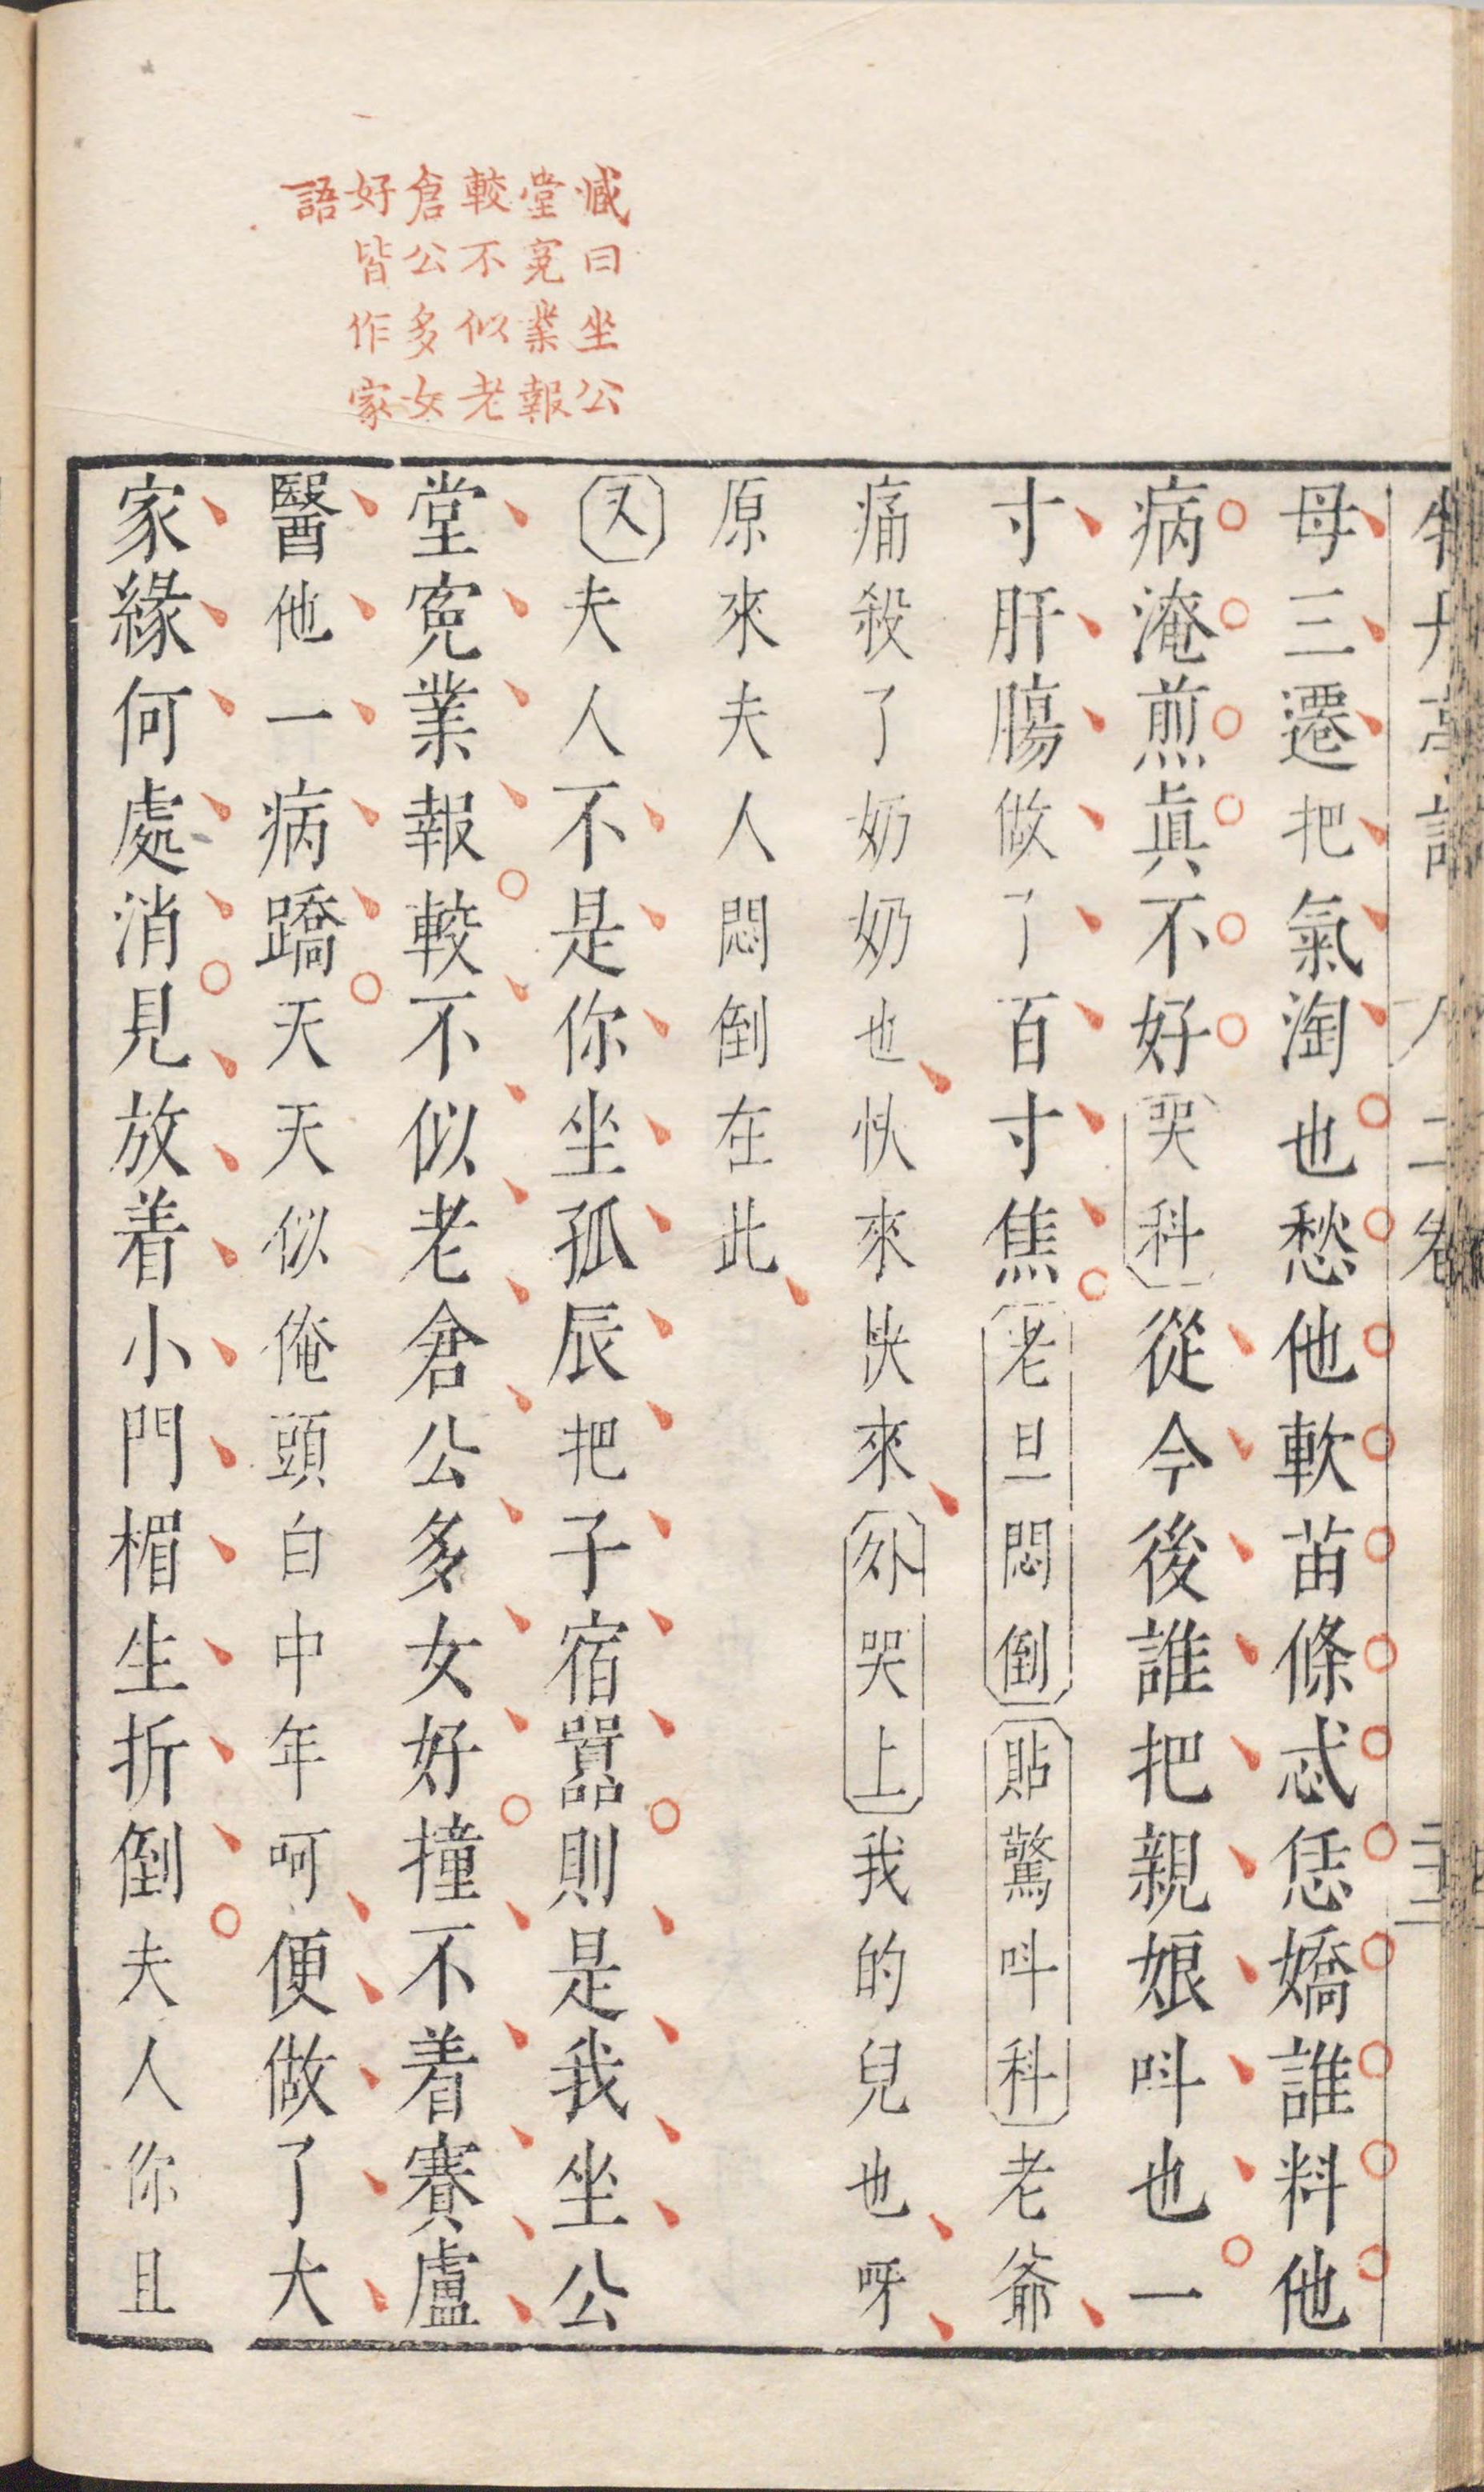 牡丹亭記
二卷
母三遷把氣淘也愁他軟苗條忒恁嬌誰料他
病淹煎眞不好哭科從今後誰把親娘呌也一
寸肝膓做了百寸焦老旦悶倒貼驚呌科老爺
痛殺了奶奶也快來快來外哭上我的兒也呀
原來夫人悶倒在此
又夫人不是你坐孤辰把子宿嚚則是我坐公
堂寃業報較不似老倉公多女好撞不着賽盧
醫他一病蹻天天似俺頭白中年呵便做了大
家緣何處消見放着小門楣生折倒夫人你且
臧曰坐公
堂寃業報
較不似老
倉公多女
好皆作家
語